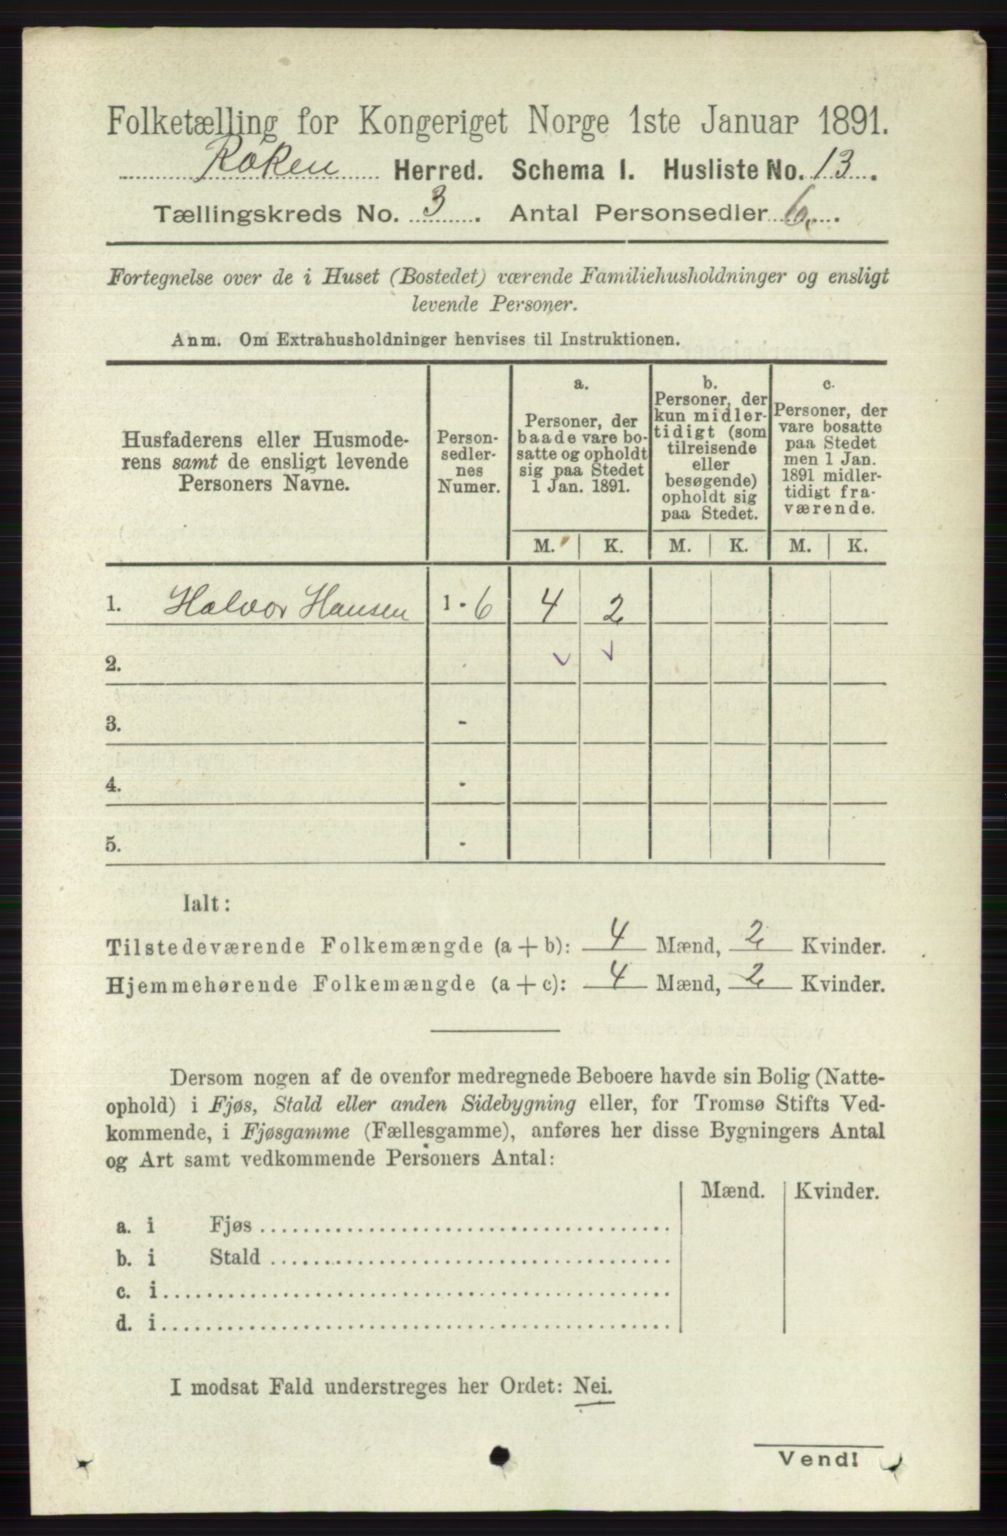 Folketælling for Kongeriget Norge 1ste Januar 1891.
Røken Herred. Schema I. Husliste No. 13.
Tællingskreds No. 3. Antal Personsedler 6.
Fortegnelse over de i Huset (Bostedet) værende Familiehusholdninger og ensligt
levende Personer.
Anm. Om Extrahusholdninger henvises til Instruktionen.
Husfaderens eller Husmode-
rens samt de ensligt levende
Personers Navne.
Person-
sedler-
nes
Numer.
a.
Personer, der
baade vare bo-
satte og opholdt
sig paa Stedet
1 Jan. 1891.
b.
Personer, der
kun midler-
tidigt (som
tilreisende
eller
besøgende)
opholdt sig
paa Stedet.
c.
Personer, der
vare bosatte
paa Stedet
men 1 Jan.
1891 midler-
tidigt fra-
værende.
M. K. M. K. M. K.
1. Halvor Hansen 1 - 6 4 2
2.
3. -
4. -
5. -
Ialt:
Tilstedeværende Folkemængde (a + b): 4 Mænd, 2 Kvinder.
Hjemmehørende Folkemængde (a + c): 4 Mænd, 2 Kvinder.
Dersom nogen af de ovenfor medregnede Beboere havde sin Bolig (Natte-
ophold) i Fjøs, Stald eller anden Sidebygning eller, for Tromsø Stifts Ved-
kommende, i Fjøsgamme (Fællesgamme), anføres her disse Bygningers Antal
og Art samt vedkommende Personers Antal:
Mænd. Kvinder.
a. i Fjøs
b. i Stald
c. i
d. i
I modsat Fald understreges her Ordet: Nei.
Vend!